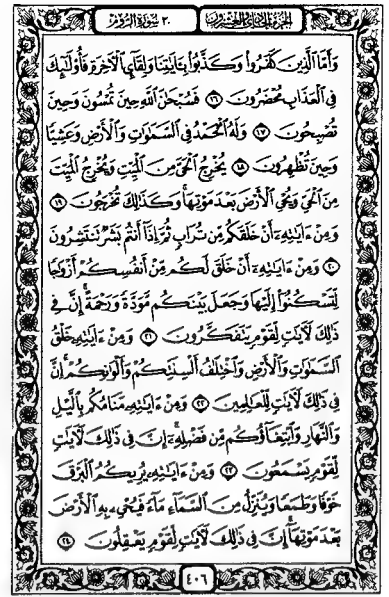 الجزء الحادي والعشرون ٣٠ سورة الروم
وَأَمَّا ٱلَّذِينَ كَفَرُوا۟ وَكَذَّبُوا۟ بِـَٔايَٰتِنَا وَلِقَآئِ ٱلْءَاخِرَةِ فَأُو۟لَٰٓئِكَ
فِى ٱلْعَذَابِ مُحْضَرُونَ ١٦ فَسُبْحَٰنَ ٱللَّهِ حِينَ تُمْسُونَ وَحِينَ
تُصْبِحُونَ ١٧ وَلَهُ ٱلْحَمْدُ فِى ٱلسَّمَٰوَٰتِ وَٱلْأَرْضِ وَعَشِيًّا
وَحِينَ تُظْهِرُونَ ١٨ يُخْرِجُ ٱلْحَىَّ مِنَ ٱلْمَيِّتِ وَيُخْرِجُ ٱلْمَيِّتَ
مِنَ ٱلْحَىِّ وَيُحْىِ ٱلْأَرْضَ بَعْدَ مَوْتِهَا ۚ وَكَذَٰلِكَ تُخْرَجُونَ ١٩
وَمِنْ ءَايَٰتِهِۦٓ أَنْ خَلَقَكُم مِّن تُرَابٍ ثُمَّ إِذَآ أَنتُم بَشَرٌ تَنتَشِرُونَ
٢٠ وَمِنْ ءَايَٰتِهِۦٓ أَنْ خَلَقَ لَكُم مِّنْ أَنفُسِكُمْ أَزْوَٰجًا
لِّتَسْكُنُوٓا۟ إِلَيْهَا وَجَعَلَ بَيْنَكُم مَّوَدَّةً وَرَحْمَةً ۚ إِنَّ فِى
ذَٰلِكَ لَءَايَٰتٍ لِّقَوْمٍ يَتَفَكَّرُونَ ٢١ وَمِنْ ءَايَٰتِهِۦ خَلْقُ
ٱلسَّمَٰوَٰتِ وَٱلْأَرْضِ وَٱخْتِلَٰفُ أَلْسِنَتِكُمْ وَأَلْوَٰنِكُمْ ۚ إِنَّ
فِى ذَٰلِكَ لَءَايَٰتٍ لِّلْعَٰلِمِينَ ٢٢ وَمِنْ ءَايَٰتِهِۦ مَنَامُكُم بِٱلَّيْلِ
وَٱلنَّهَارِ وَٱبْتِغَآؤُكُم مِّن فَضْلِهِۦٓ ۚ إِنَّ فِى ذَٰلِكَ لَءَايَٰتٍ
لِّقَوْمٍ يَسْمَعُونَ ٢٣ وَمِنْ ءَايَٰتِهِۦ يُرِيكُمُ ٱلْبَرْقَ
خَوْفًا وَطَمَعًا وَيُنَزِّلُ مِنَ ٱلسَّمَآءِ مَآءً فَيُحْىِۦ بِهِ ٱلْأَرْضَ
بَعْدَ مَوْتِهَآ ۚ إِنَّ فِى ذَٰلِكَ لَءَايَٰتٍ لِّقَوْمٍ يَعْقِلُونَ ٢٤
٤٠٦